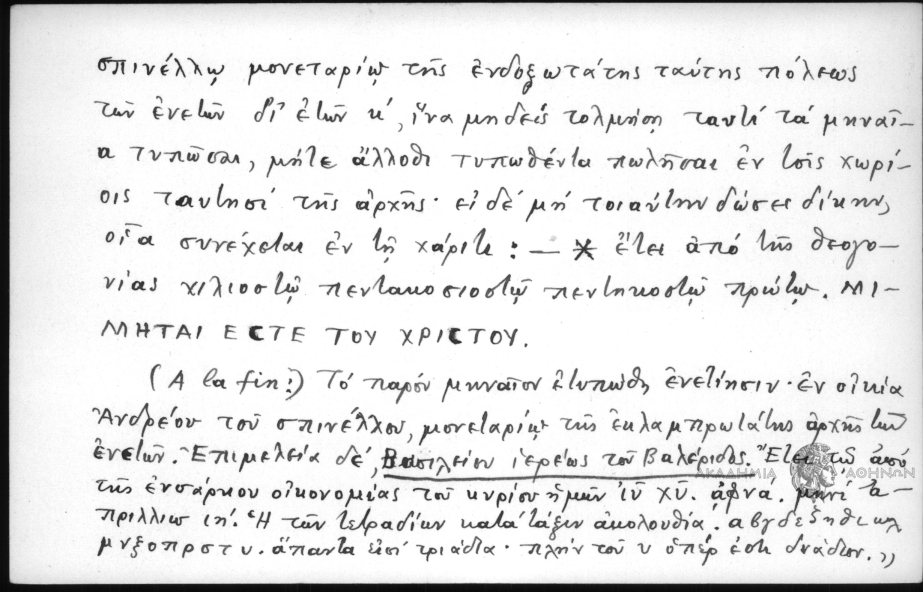 σπινέλλῳ μονεταρίῳ τῆς ἐνδοξωτάτης ταύτης πόλεως
τῶν ἐνετῶν δι' ἐτῶν κ', ἵνα μηδείς τολμήσῃ ταυτί τά μηναῖ-
α τυπῶσαι, μήτε ἄλλοθι τυπωθέντα πωλῆσαι ἐν τοῖς χωρί-
οις ταυτησί τῆς ἀρχῆς· εἰ δέ μή τοιαύτην δώσει δίκην,
οἷα συνέχεται ἐν τῇ χάριτι : — * ἔτει ἀπό τῆς θεογο-
νίας χιλιοστῷ πεντακοσιοστῷ πεντηκοστῷ πρώτῳ. ΜΙ-
ΜΗΤΑΙ ΕCΤΕ ΤΟΥ ΧΡΙCΤΟΥ.
(A la fin:) Τό παρόν μηναῖον ἐτυπώθη ἐνετίησιν· ἐν οἰκίᾳ
Ἀνδρέου τοῦ σπινέλλου, μονεταρίῳ τῆς ἐκλαμπρωτάτης ἀρχῆς τῶν
ἐνετῶν. Ἐπιμελείᾳ δέ, Βασιλείου ἱερέως τοῦ Βαλέριδος. Ἔτει τῷ ἀπό
τῆς ἐνσάρκου οἰκονομίας τοῦ κυρίου ἡμῶν ἰῦ χῦ. ἀφνά. μηνί ἀ-
πριλλίῳ ιη'. Ἡ τῶν τετραδίων κατάταξιν ἀκολουθία. α β γ δ ε ζ η θ ι κ λ
μ ν ξ ο π ρ σ τ υ. ἅπαντα εἰσί τριάδια· πλήν τοῦ υ ὅπέρ ἐστι δυάδιον.»
ΑΚΑΔΗΜΙΑ ΑΘΗΝΩΝ